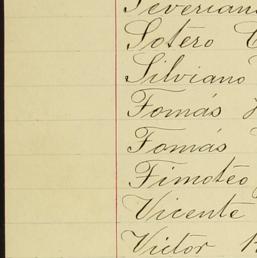 Severiano
Sotero
Silviano
Tomás
Tomás
Timoteo
Vicente
Victor